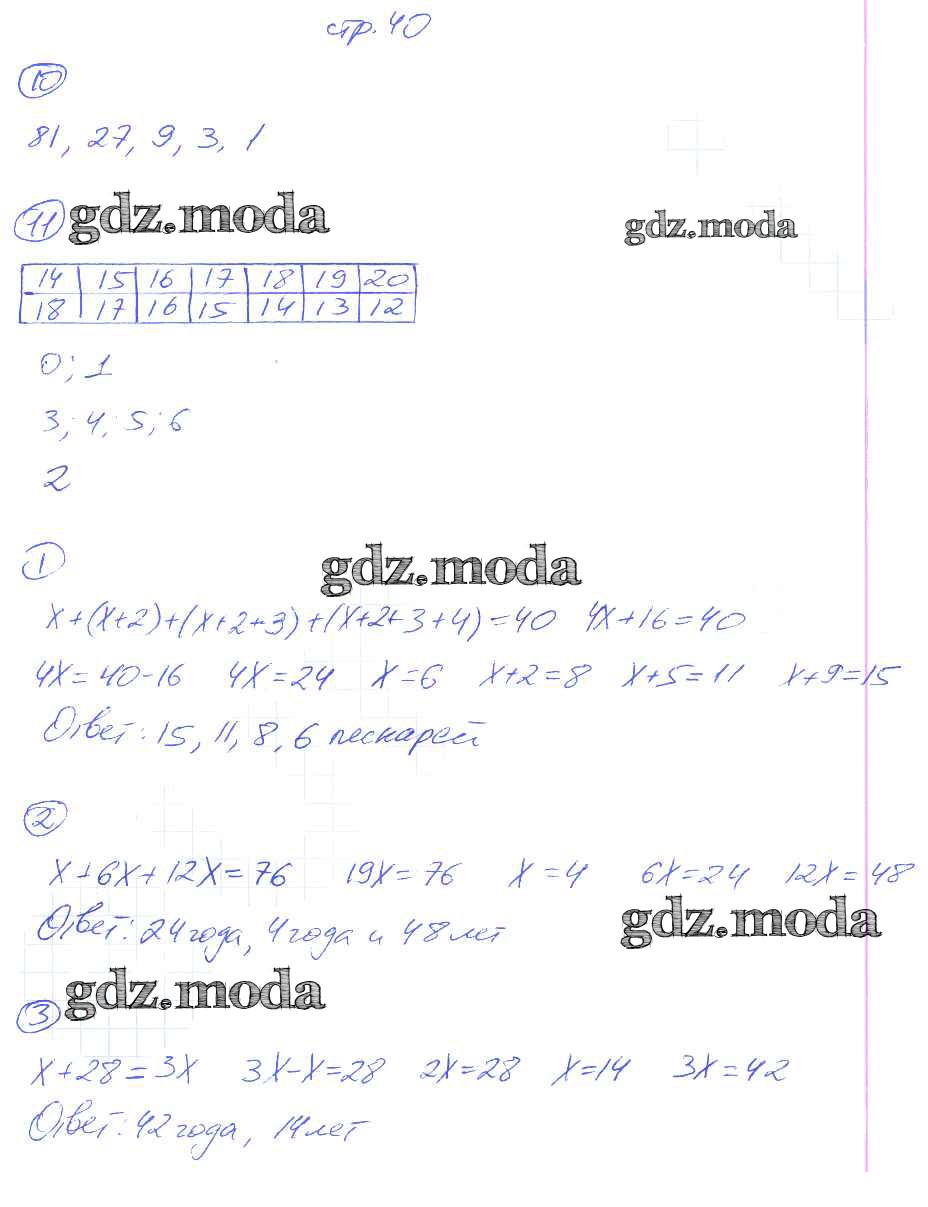 стр. 40
10
81, 27, 9, 3, 1
11 gdz.moda gdz.moda
14 15 16 17 18 19 20
18 17 16 15 14 13 12
0; 1
3; 4; 5; 6
2
1 gdz.moda
x+(x+2)+(x+2+3)+(x+2+3+4)=40 4x+16=40
4x=40-16 4x=24 x=6 x+2=8 x+5=11 x+9=15
Ответ: 15, 11, 8, 6 пескарей
2
x+6x+12x=76 19x=76 x=4 6x=24 12x=48
Ответ: 24 года, 4 года и 48 лет gdz.moda
3 gdz.moda
x+28=3x 3x-x=28 2x=28 x=14 3x=42
Ответ: 42 года, 14 лет